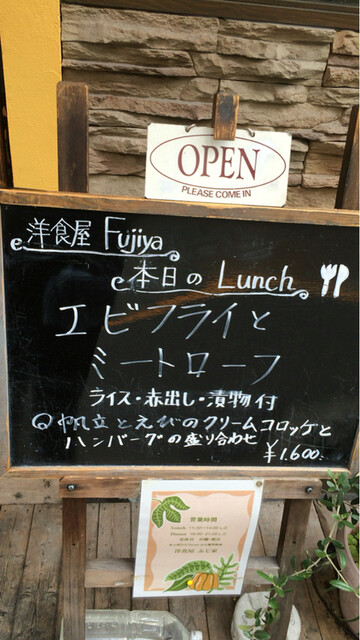 OPEN
PLEASE COME IN
洋食屋 Fujiya
本日の Lunch
エビフライと
ミートローフ
ライス・赤出し・漬物付
帆立とえびのクリームコロッケと
ハンバーグの盛り合わせ
¥1,600.
営業時間
洋食屋 ふじ家